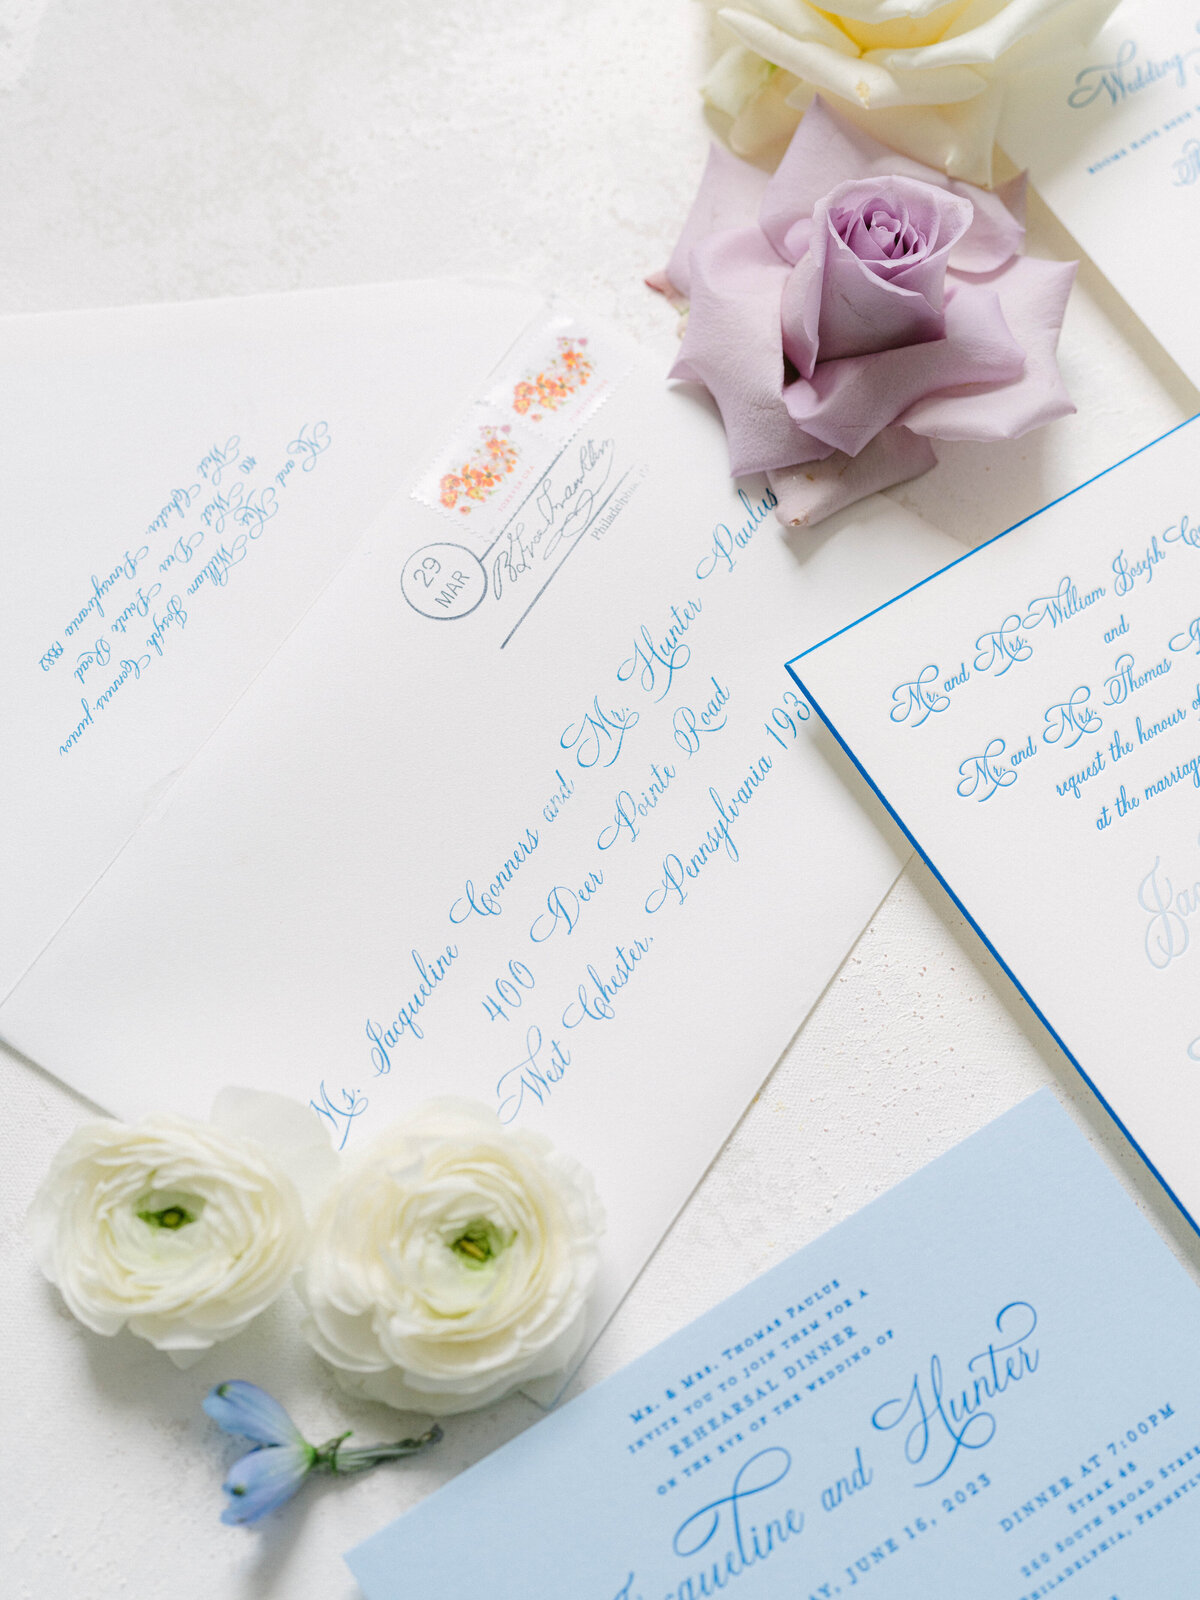 Mr. and Mrs. William Joseph Conners, junior
400 West Deer Pointe Road
West Chester, Pennsylvania 19382
FOREVER USA
29
MAR
B Free Franklin
Philadelphia,
Ms. Jacqueline Conners and Mr. Hunter Paulus
400 Deer Pointe Road
West Chester, Pennsylvania 193
Wedding
ROOMS HAVE BEEN
Mr. and Mrs. William Joseph
and
Mr. and Mrs. Thomas
request the honour of
at the marriage
MR. & MRS. THOMAS PAULUS
INVITE YOU TO JOIN THEM FOR A
REHEARSAL DINNER
ON THE EVE OF THE WEDDING OF
Jacqueline and Hunter
JUNE 16, 2023
DINNER AT 7:00PM
STEAK 48
260 SOUTH BROAD STREE
PHILADELPHIA, PENNSYL